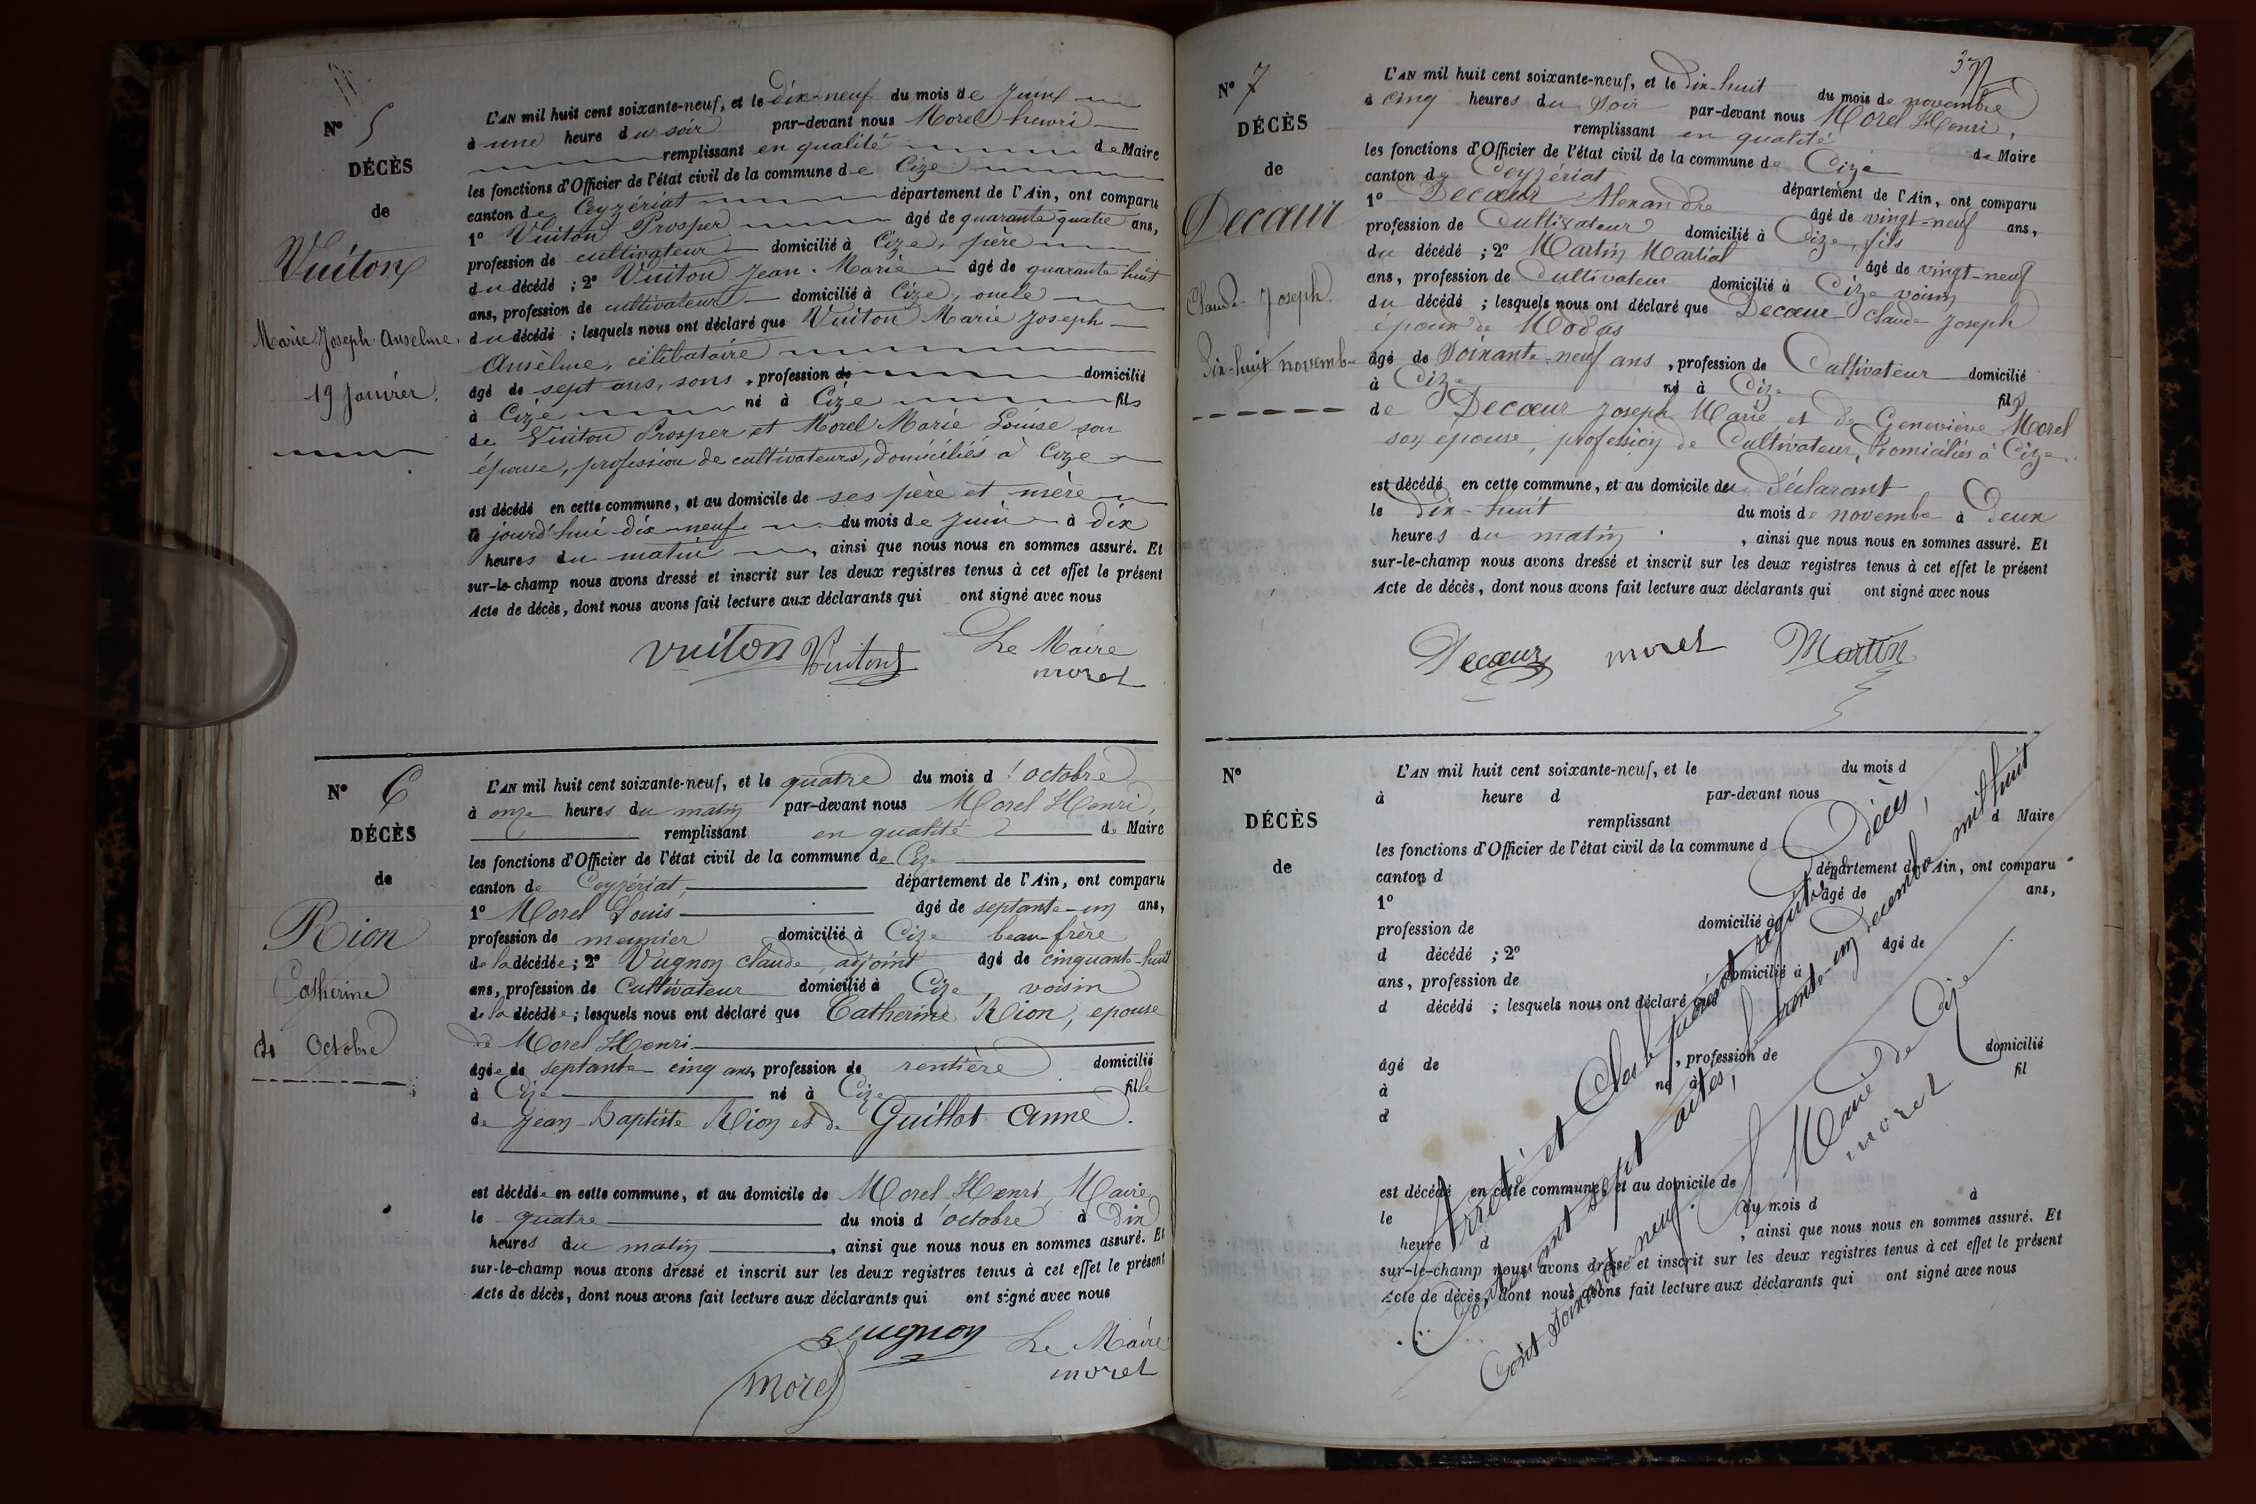 N° 5
DÉCÈS
de
Vuiton
Marie Joseph Anselme.
19 Janvier.
L'AN mil huit cent soixante-neuf, et le dix-neuf du mois de Juin
à une heure du soir par-devant nous Morel henri
remplissant en qualité de Maire
les fonctions d'Officier de l'état civil de la commune de Cize
canton de Ceyzériat département de l'Ain, ont comparu
1° Vuiton Prosper âgé de quarante quatre ans,
profession de cultivateur domicilié à Cize, père
du décédé ; 2° Vuiton Jean-Marie âgé de quarante huit
ans, profession de cultivateur domicilié à Cize, oncle
du décédé ; lesquels nous ont déclaré que Vuiton Marie Joseph
Anselme, célibataire
âgé de sept ans, sans , profession de domicilié
à Cize né à Cize fils
de Vuiton Prosper et Morel Marie Louise son
épouse, profession de cultivateurs, domiciliés à Cize
est décédé en cette commune, et au domicile de ses père et mère
le jourd'hui dix-neuf du mois de Juin à dix
heures du matin , ainsi que nous nous en sommes assuré. Et
sur-le-champ nous avons dressé et inscrit sur les deux registres tenus à cet effet le présent
Acte de décès, dont nous avons fait lecture aux déclarants qui ont signé avec nous
Vuiton Vuiton Le Maire
morel
N° 6
DÉCÈS
de
Rion
Catherine
Octobre
L'AN mil huit cent soixante-neuf, et le quatre du mois d'octobre
à onze heures du matin par-devant nous Morel Henri,
remplissant en qualité de Maire
les fonctions d'Officier de l'état civil de la commune de Cize
canton de Ceyzériat département de l'Ain, ont comparu
1° Morel Louis âgé de septante-un ans,
profession de meunier domicilié à Cize beau-frère
de la décédée ; 2° Vugnon Claude, adjoint âgé de cinquante-huit
ans, profession de Cultivateur domicilié à Cize, voisin
de la décédée ; lesquels nous ont déclaré que Catherine Rion, épouse
de Morel Henri
âgée de septante cinq ans, profession de rentière domicilié
à Cize né à Cize fille
de Jean-Baptiste Rion et de Guillot Anne.
est décédée en cette commune, et au domicile de Morel Henri Maire
le quatre du mois d'octobre à Dix
heures du matin , ainsi que nous nous en sommes assuré. Et
sur-le-champ nous avons dressé et inscrit sur les deux registres tenus à cet effet le présent
Acte de décès, dont nous avons fait lecture aux déclarants qui ont signé avec nous
Vugnon Le Maire
morel morel
37
N° 7
DÉCÈS
de
Decœur
Claude Joseph.
Dix-huit novembre
L'AN mil huit cent soixante-neuf, et le Dix-huit du mois de novembre
à cinq heures du Soir par-devant nous Morel Henri,
remplissant en qualité de Maire
les fonctions d'Officier de l'état civil de la commune de Cize
canton de Ceyzériat département de l'Ain, ont comparu
1° Decœur Alexandre âgé de vingt-neuf ans,
profession de Cultivateur domicilié à Cize, fils
du décédé ; 2° Martin Martial âgé de vingt-neuf
ans, profession de Cultivateur domicilié à Cize voisin
du décédé ; lesquels nous ont déclaré que Decœur Claude Joseph
époux de Modas
âgé de Soixante-neuf ans , profession de Cultivateur domicilié
à Cize né à Cize fils
de Decœur Joseph Marie et de Geneviève Morel
son épouse, profession de Cultivateur, Domiciliés à Cize.
est décédé en cette commune, et au domicile du Déclarant
le Dix-huit du mois de novembre à Deux
heures du matin , ainsi que nous nous en sommes assuré. Et
sur-le-champ nous avons dressé et inscrit sur les deux registres tenus à cet effet le présent
Acte de décès, dont nous avons fait lecture aux déclarants qui ont signé avec nous
Decœur morel Martin
N°
DÉCÈS
de
L'AN mil huit cent soixante-neuf, et le du mois d
à heure d par-devant nous
remplissant d Maire
les fonctions d'Officier de l'état civil de la commune d
canton d département de l'Ain, ont comparu
1° âgé de ans,
profession de domicilié à
d décédé ; 2° âgé de
ans, profession de domicilié à
d décédé ; lesquels nous ont déclaré que
âgé de , profession de domicilié
à né à fil
d
est décédé en cette commune, et au domicile de
le du mois d à
heure d , ainsi que nous nous en sommes assuré. Et
sur-le-champ nous avons dressé et inscrit sur les deux registres tenus à cet effet le présent
Acte de décès, dont nous avons fait lecture aux déclarants qui ont signé avec nous
Arrêté et Clos le présent registre Décès,
Contenant sept actes, le trente-un Decembre mil huit
Cent Soixante-neuf.
Maire de Cize
morel